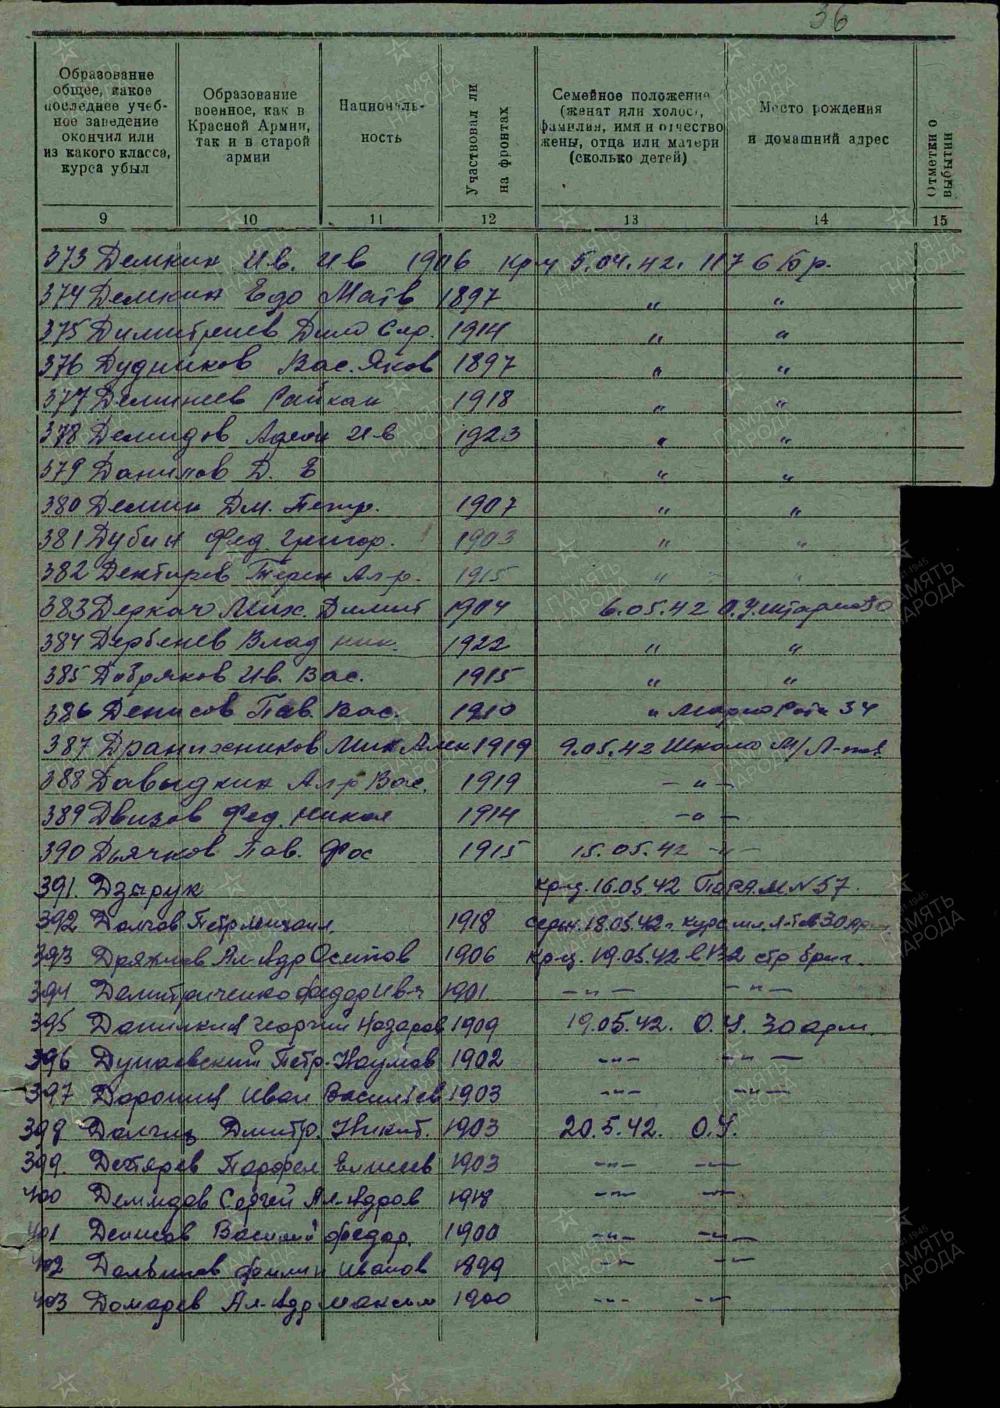 36
Образование общее, какое последнее учебное заведение окончил или из какого класса, курса убыл
Образование военное, как в Красной Армии, так и в старой армии
Национальность
Участвовал ли на фронтах
Семейное положение (женат или холост, фамилия, имя и отчество жены, отца или матери (сколько детей)
Место рождения и домашний адрес
Отметки о выбытии
9 10 11 12 13 14 15
373 Демкин Ив. Ив 1906 кр-ц 5.04.42. 1176 Бр.
374 Демкин Едо Матв 1897 " "
375 Димитриев Дми Сер. 1914 " "
376 Дудников Вас. Яков 1897 " "
377 1918 " "
378 Демидов Ив 1923 " "
379 Данилов Д. Е " "
380 Демин Дм. Петр. 1907 " "
381 Дубин Фед. Григор. 1903 " "
382 Дектирев Терен Алр. 1915 " "
383 Деркач Мих. Димит 1904 6.05.42 О.У.
384 Дербенев Влад ник. 1922 " "
385 Добряков Ив. Вас. 1915 " "
386 Денисов Пав. Вас. 1910 " 34
387 Дранишников Мих 1919 9.05.42 Школа М/Л-тов
388 Давыдкин Алр Вас. 1919 – " –
389 Двизов Фед. Никол 1914 – " –
390 Дьячков Пав. Фос 1915 15.05.42 – " –
391. Дзырук кр-ц. 16.05.42 N 57.
392 Долгов Петр Михаил. 1918 18.05.42г. курс мл. л-тов 30 арм
393 Дряжнев Ал-др Осипов 1906 кр-ц. 19.05.42 в 132 стр бриг.
394 Демитриченко Федор Ив-ч 1901 – " – – " –
395 Данилкин Георгий Назаров 1909 19.05.42. О.У. 30 арм.
396 Дунаевский Петр Наумов 1902 – " – – " –
397 Доронин Иван Васильев 1903 – " – – " –
398 Долгих Дмитр. Никит. 1903 20.5.42. О.У.
399. Дегтярев Парфен Елисеев 1903 – " – – " –
400 Демидов Сергей Ал-дров 1918 – " – – " –
401 Денисов Василий Федор. 1900 – " – – " –
402 Иванов 1899 – " – – " –
403 Домарев Ал-др Максим 1900 – " – – " –
ПАМЯТЬ НАРОДА